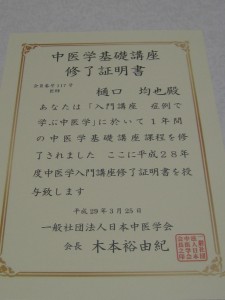 中医学基礎講座
修了証明書
樋口 均也殿
あなたは「入門講座 症例で
学ぶ中医学」に於いて1年間
の中医学基礎講座課程を修
了されました ここに平成28年
度中医学入門講座修了証明書を授
与致します
平成29年3月25日
一般社団法人日本中医学会
会長 木本裕由紀